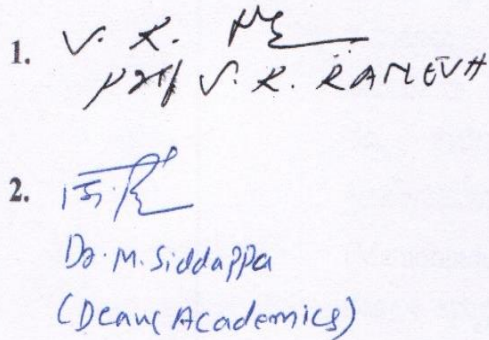 1. V. R.
Prof V. R. RANEVA
2.
Dr. M. Siddappa
(Dean (Academics)